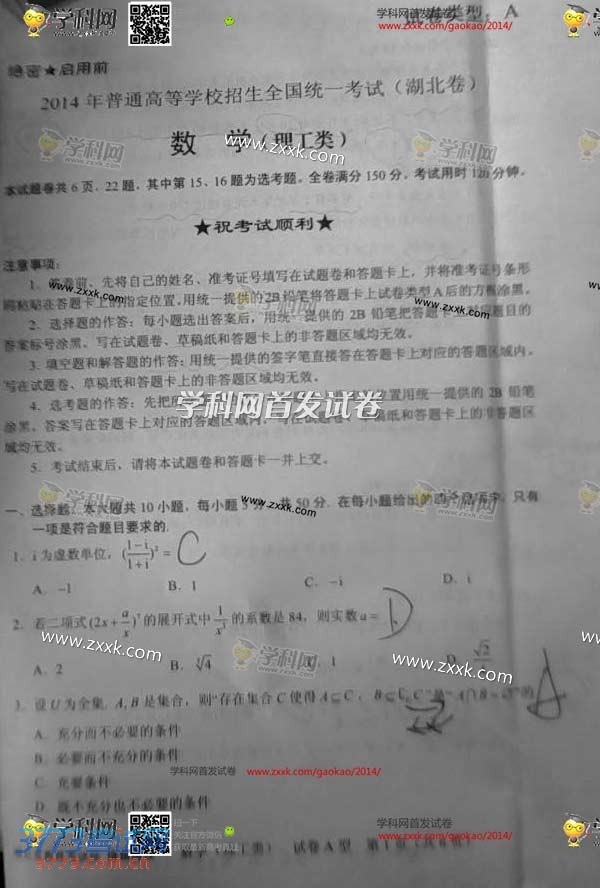 学科网 www.zxxk.com
学科网首发试卷
zxxk.com/gaokao/2014/
试卷类型：A
绝密★启用前
2014年普通高等学校招生全国统一考试（湖北卷）
数 学（理工类）
www.zxxk.com
本试题卷共6页，22题，其中第15、16题为选考题。全卷满分150分。考试用时120分钟。
★祝考试顺利★
注意事项：
1. 先将自己的姓名、准考证号填写在试题卷和答题卡上，并将准考证号条形
码粘贴在答题卡上的指定位置。用统一提供的2B铅笔将答题卡上试卷类型A后的方框涂黑。
2. 选择题的作答：每小题选出答案后，用统一提供的2B铅笔把答题卡上对应题目的
答案标号涂黑。写在试题卷、草稿纸和答题卡上的非答题区域均无效。
3. 填空题和解答题的作答：用统一提供的签字笔直接答在答题卡上对应的答题区域内。
写在试题卷、草稿纸和答题卡上的非答题区域均无效。
4. 选考题的作答：先把 位置用统一提供的2B铅笔
涂黑。答案写在答题卡上对应的答题区域内，写在试题卷、草稿纸和答题卡上的非答题区
域均无效。
学科网首发试卷
5. 考试结束后，请将本试题卷和答题卡一并上交。
一、选择题：本大题共10小题，每小题5分，共50分. 在每小题给出的四个选项中，只有
一项是符合题目要求的.
1. i为虚数单位，((1-i)/(1+i))² = C
A. -1 B. 1 C. -i D. i
2. 若二项式(2x+a/x)⁷的展开式中1/x³的系数是84，则实数a= D
A. 2 B. ⁵√4 C. 1 D. √2/4
3. 设U为全集，A,B是集合，则“存在集合C使得A⊆C，B⊆∁ᵤC”是“A∩B=∅”的 A
A. 充分而不必要的条件
B. 必要而不充分的条件
C. 充要条件
D. 既不充分也不必要的条件
学科网首发试卷 zxxk.com/gaokao/2014/
试卷A型
3773考试网
3773.com.cn